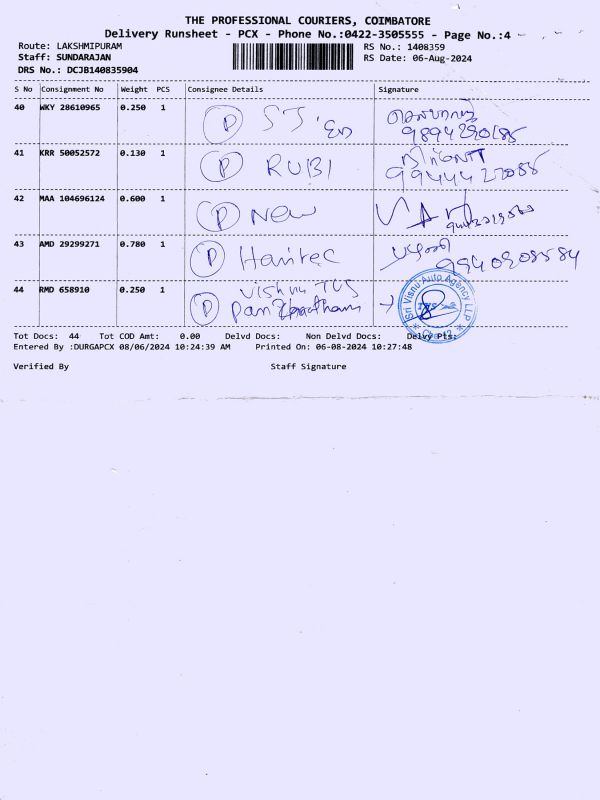 THE PROFESSIONAL COURIERS, COIMBATORE
Delivery Runsheet - PCX - Phone No.:0422-3505555 - Page No.:4
Route: LAKSHMIPURAM RS No.: 1408359
Staff: SUNDARAJAN RS Date: 06-Aug-2024
DRS No.: DCJB140835904
S No Consignment No Weight PCS Consignee Details Signature
40 WKY 28610965 0.250 1 P ST
41 KRR 50052572 0.130 1 P RUBI
9944427088
42 MAA 104696124 0.600 1 P New
43 AMD 29299271 0.780 1 P Haritec பழனி
9940908584
44 RMD 658910 0.250 1 P Vishnu TVS
Sri Visnu Auto Agency LLP
Tot Docs: 44 Tot COD Amt: 0.00 Delvd Docs: Non Delvd Docs: Delvy Pts:
Entered By :DURGAPCX 08/06/2024 10:24:39 AM Printed On: 06-08-2024 10:27:48
Verified By Staff Signature